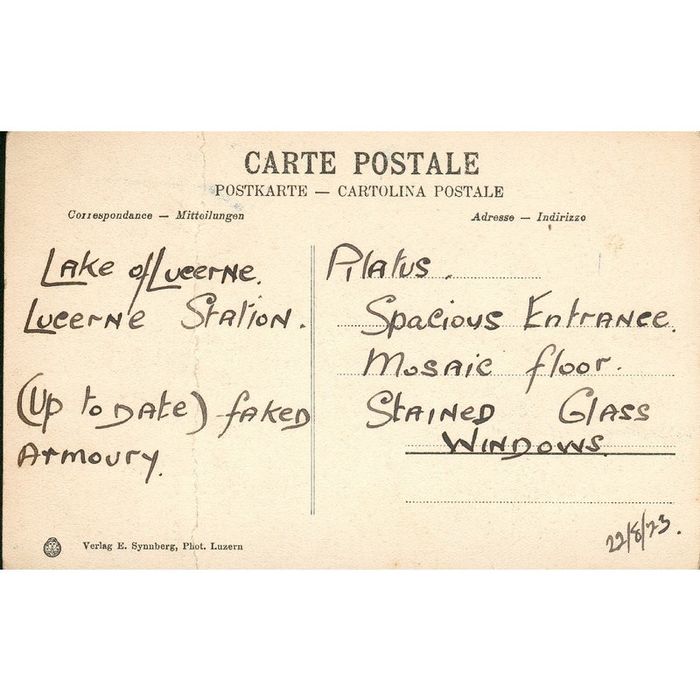 CARTE POSTALE
POSTKARTE — CARTOLINA POSTALE
Correspondance — Mitteilungen
Adresse — Indirizzo
Lake of Lucerne.
Lucerne Station.
(Up to date) faked
Armoury.
Pilatus.
Spacious Entrance.
Mosaic floor.
Stained Glass
Windows.
22/8/23.
Verlag E. Synnberg, Phot. Luzern